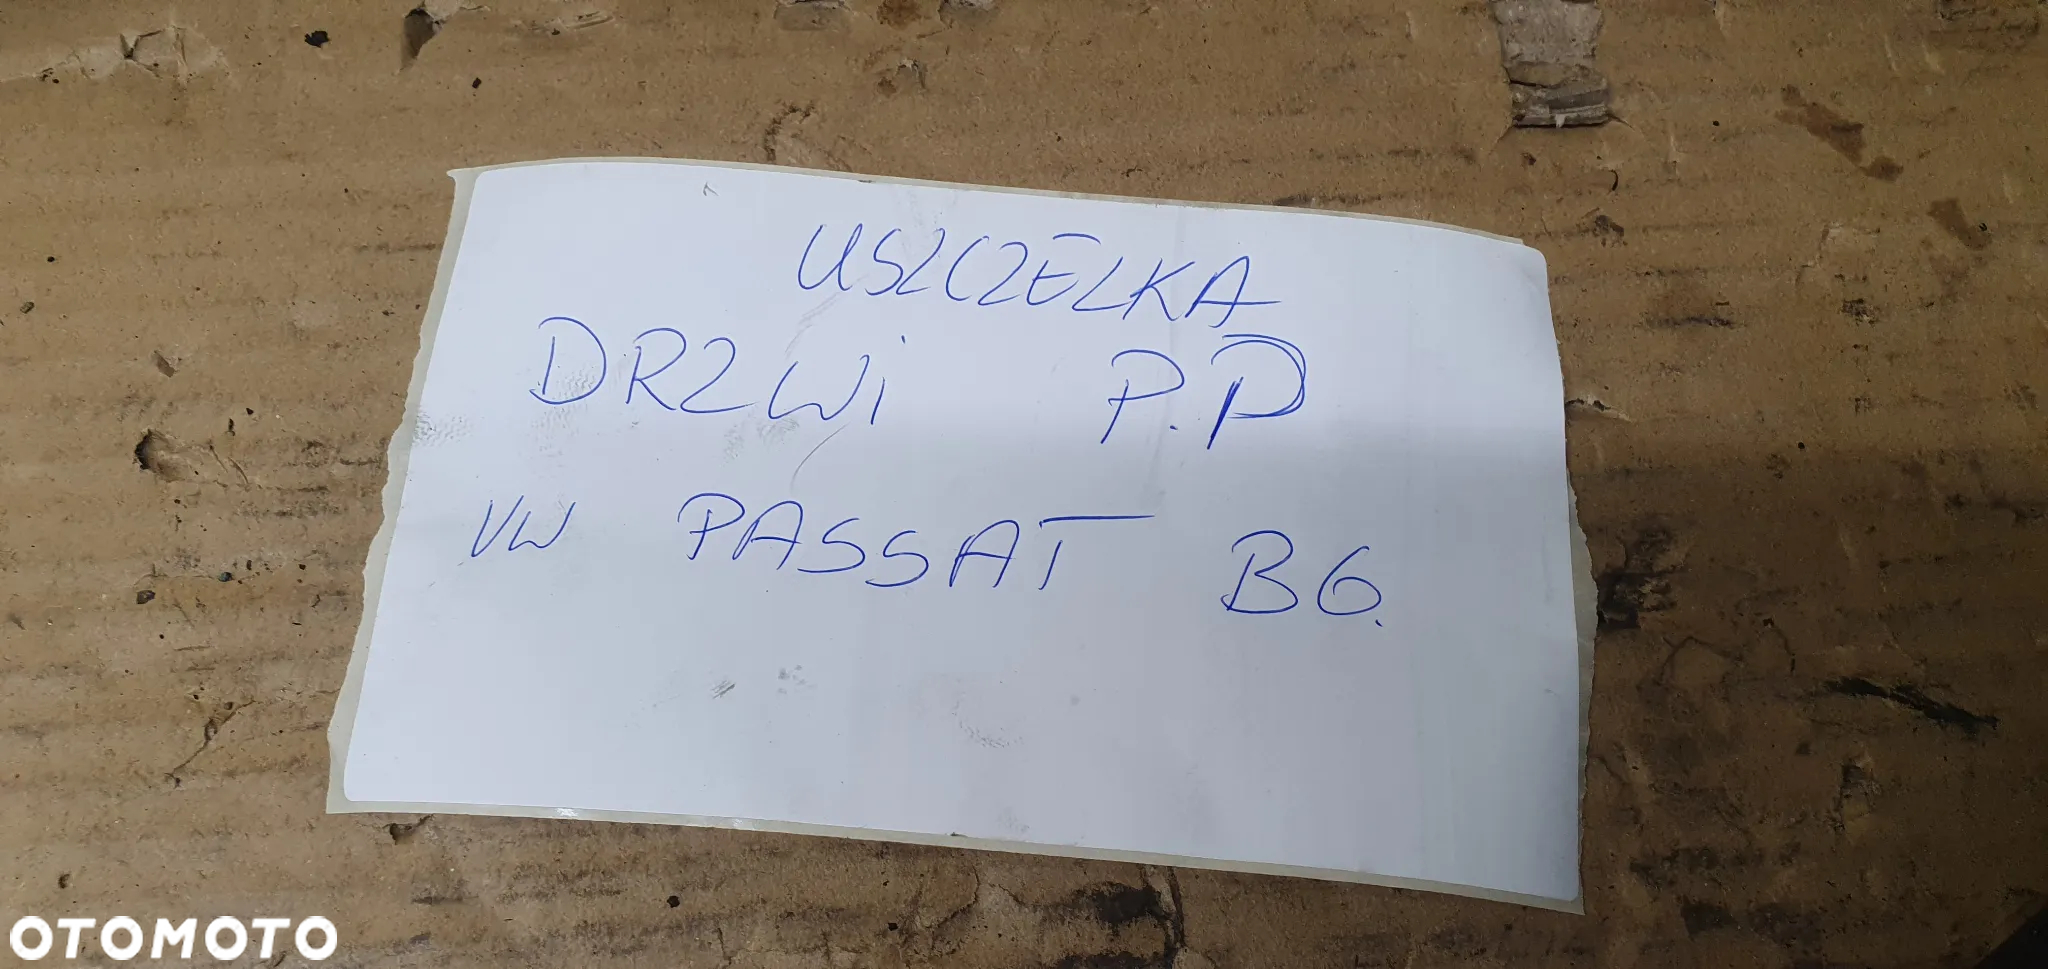 USZCZELKA
DRZWI P.P
VW PASSAT B6.
OTOMOTO